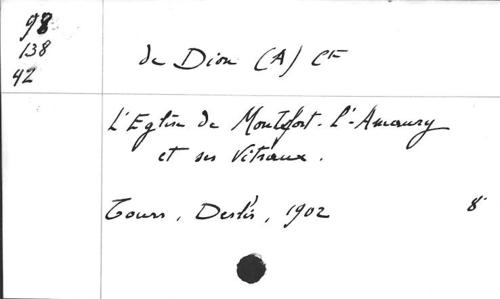 98
138
42
de Dion (A) Cte
L'Eglise de Montfort-L'-Amaury
et ses Vitraux.
Tours, Deslis, 1902 8°